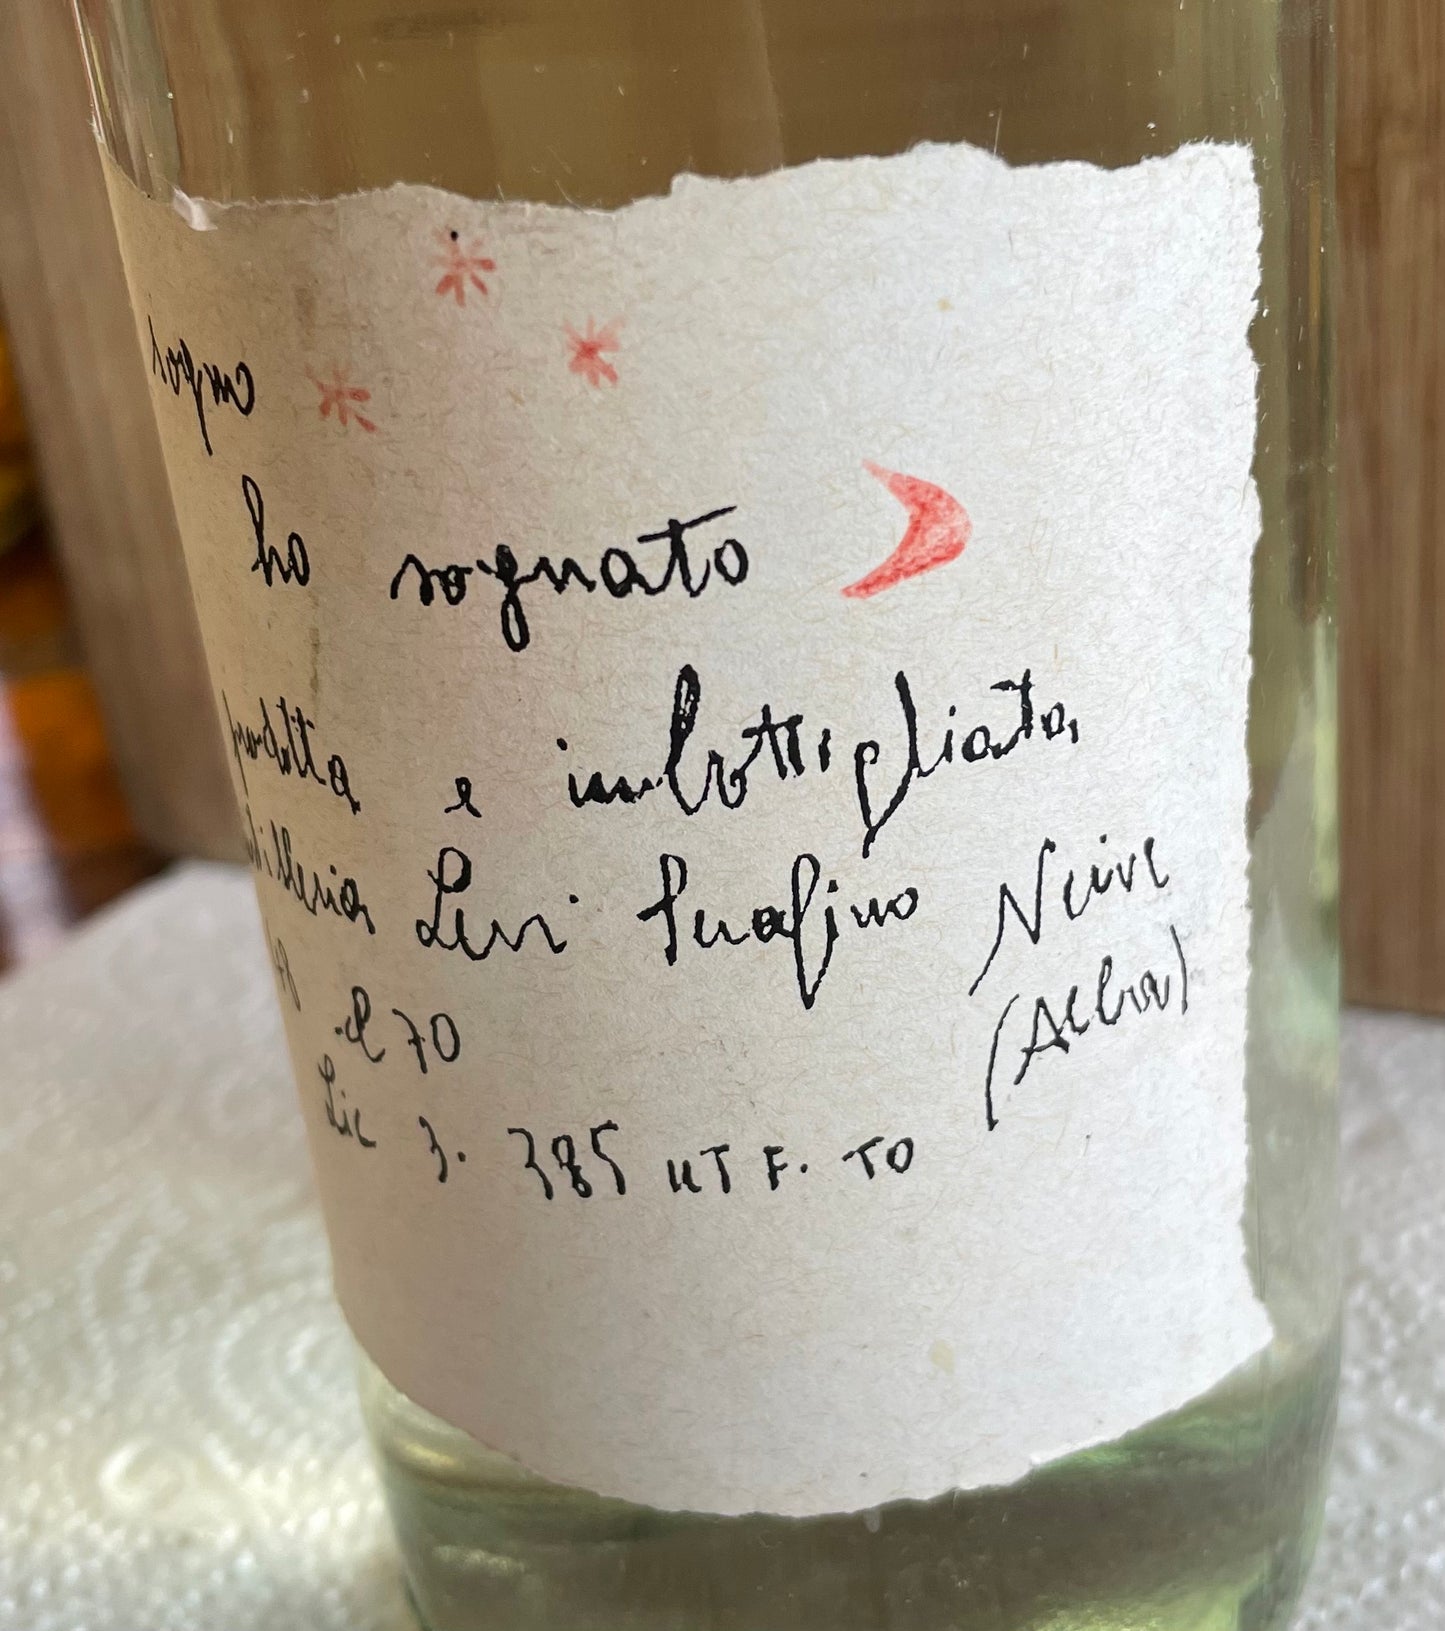 sogno
ho sognato
prodotta e imbottigliata
distilleria Levi Serafino Neive
(Alba)
cl 70
Lic 3. 385 UTF. TO